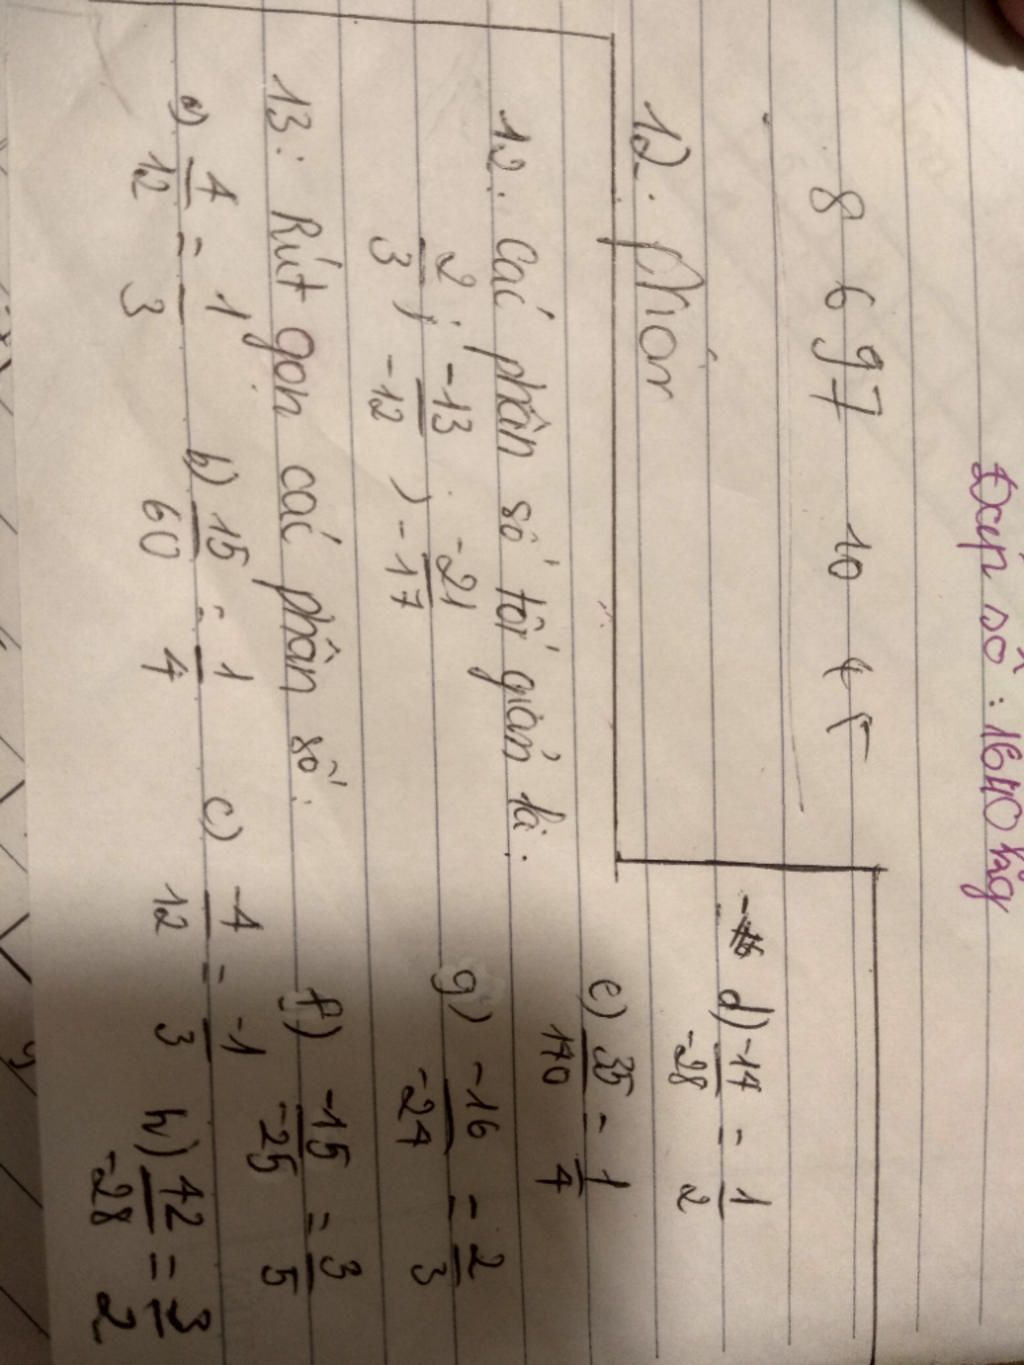 Đáp số : 1640 kg
8 6 97 10
12. phân
12. Các phân số tối giản là:
2/3 ; -13/-12 ; -21/-17
13: Rút gọn các phân số:
a) 4/12 = 1/3 b) 15/60 = 1/4 c) -4/12 = -1/3
d) -14/-28 = 1/2
e) 35/140 = 1/4
g) -16/-24 = 2/3
f) -15/-25 = 3/5
h) 42/-28 = 3/2